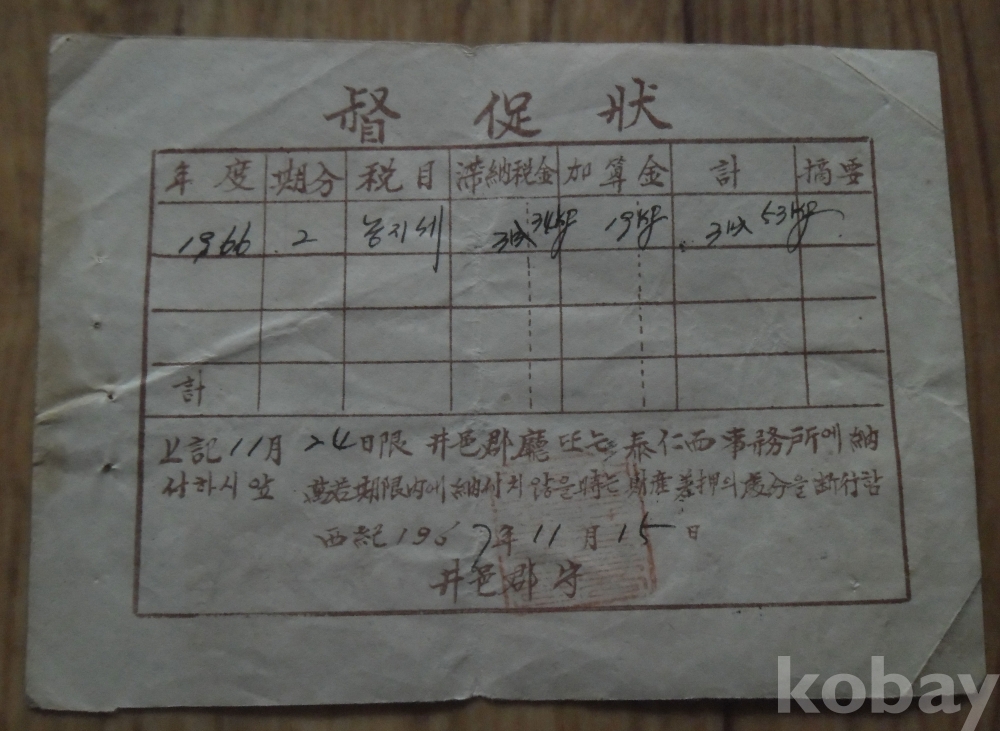 督促狀
年度 期分 税目 滞納税金 加算金 計 摘要
1966 2 농지세 34kg 19kg 53kg
計
上記 11月 24日限 井邑郡廳 또는 泰仁面事務所에 納
付하시압 萬若期限內에 納付치 않을時는 財産差押의 處分을 斷行함
西紀 1967年 11月 15日
井邑郡守
kobay